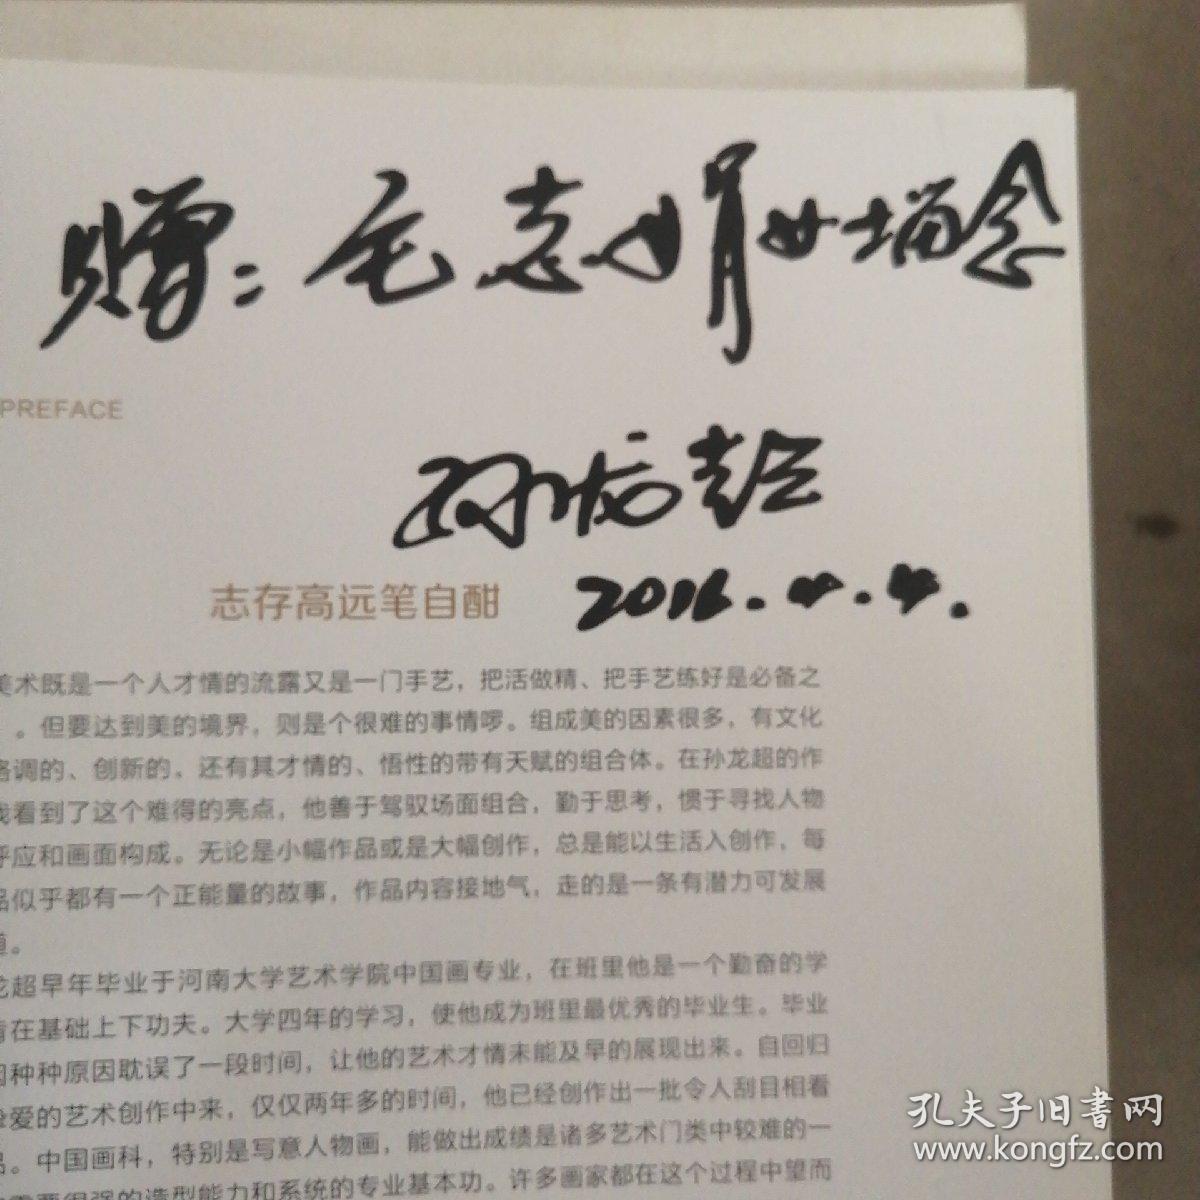 赠：毛志娟女士留念
PREFACE
孙龙超
志存高远笔自酣
2016.4.4.
美术既是一个人才情的流露又是一门手艺，把活做精、把手艺练好是必备之
。但要达到美的境界，则是个很难的事情啰。组成美的因素很多，有文化
格调的、创新的、还有其才情的、悟性的带有天赋的组合体。在孙龙超的作
我看到了这个难得的亮点，他善于驾驭场面组合，勤于思考，惯于寻找人物
呼应和画面构成。无论是小幅作品或是大幅创作，总是能以生活入创作，每
品似乎都有一个正能量的故事，作品内容接地气，走的是一条有潜力可发展
道。
龙超早年毕业于河南大学艺术学院中国画专业，在班里他是一个勤奋的学
肯在基础上下功夫。大学四年的学习，使他成为班里最优秀的毕业生。毕业
因种种原因耽误了一段时间，让他的艺术才情未能及早的展现出来。自回归
挚爱的艺术创作中来，仅仅两年多的时间，他已经创作出一批令人刮目相看
品。中国画科，特别是写意人物画，能做出成绩是诸多艺术门类中较难的一
需要很强的造型能力和系统的专业基本功。许多画家都在这个过程中望而
孔夫子旧书网
www.kongfz.com